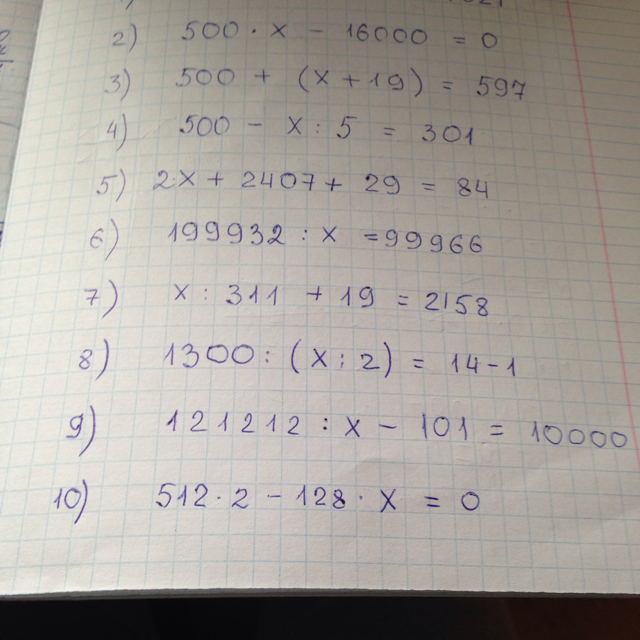 2) 500 · x - 16000 = 0
3) 500 + (x + 19) = 597
4) 500 - x : 5 = 301
5) 2·x + 2407 + 29 = 84
6) 199932 : x = 99966
7) x : 311 + 19 = 2158
8) 1300 : (x : 2) = 14 - 1
9) 121212 : x - 101 = 10000
10) 512 · 2 - 128 · x = 0